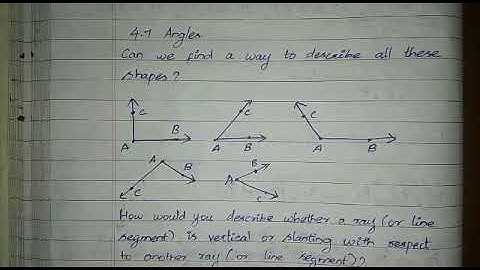 4.1 Angles
Can we find a way to describe all these
shapes?
C
A
B
C
A
B
C
A
B
A
B
C
B
A
C
How would you describe whether a ray (or line
segment) is vertical or slanting with respect
to another ray (or line segment)?